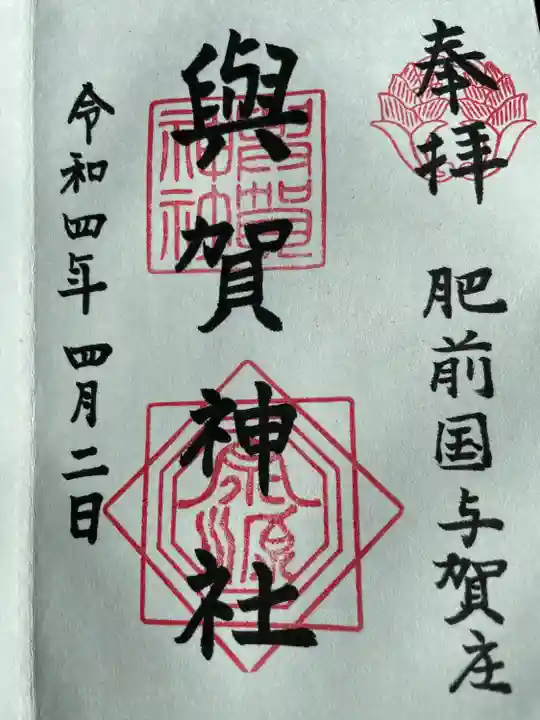 奉拝
肥前国与賀庄
與賀神社
令和四年四月二日